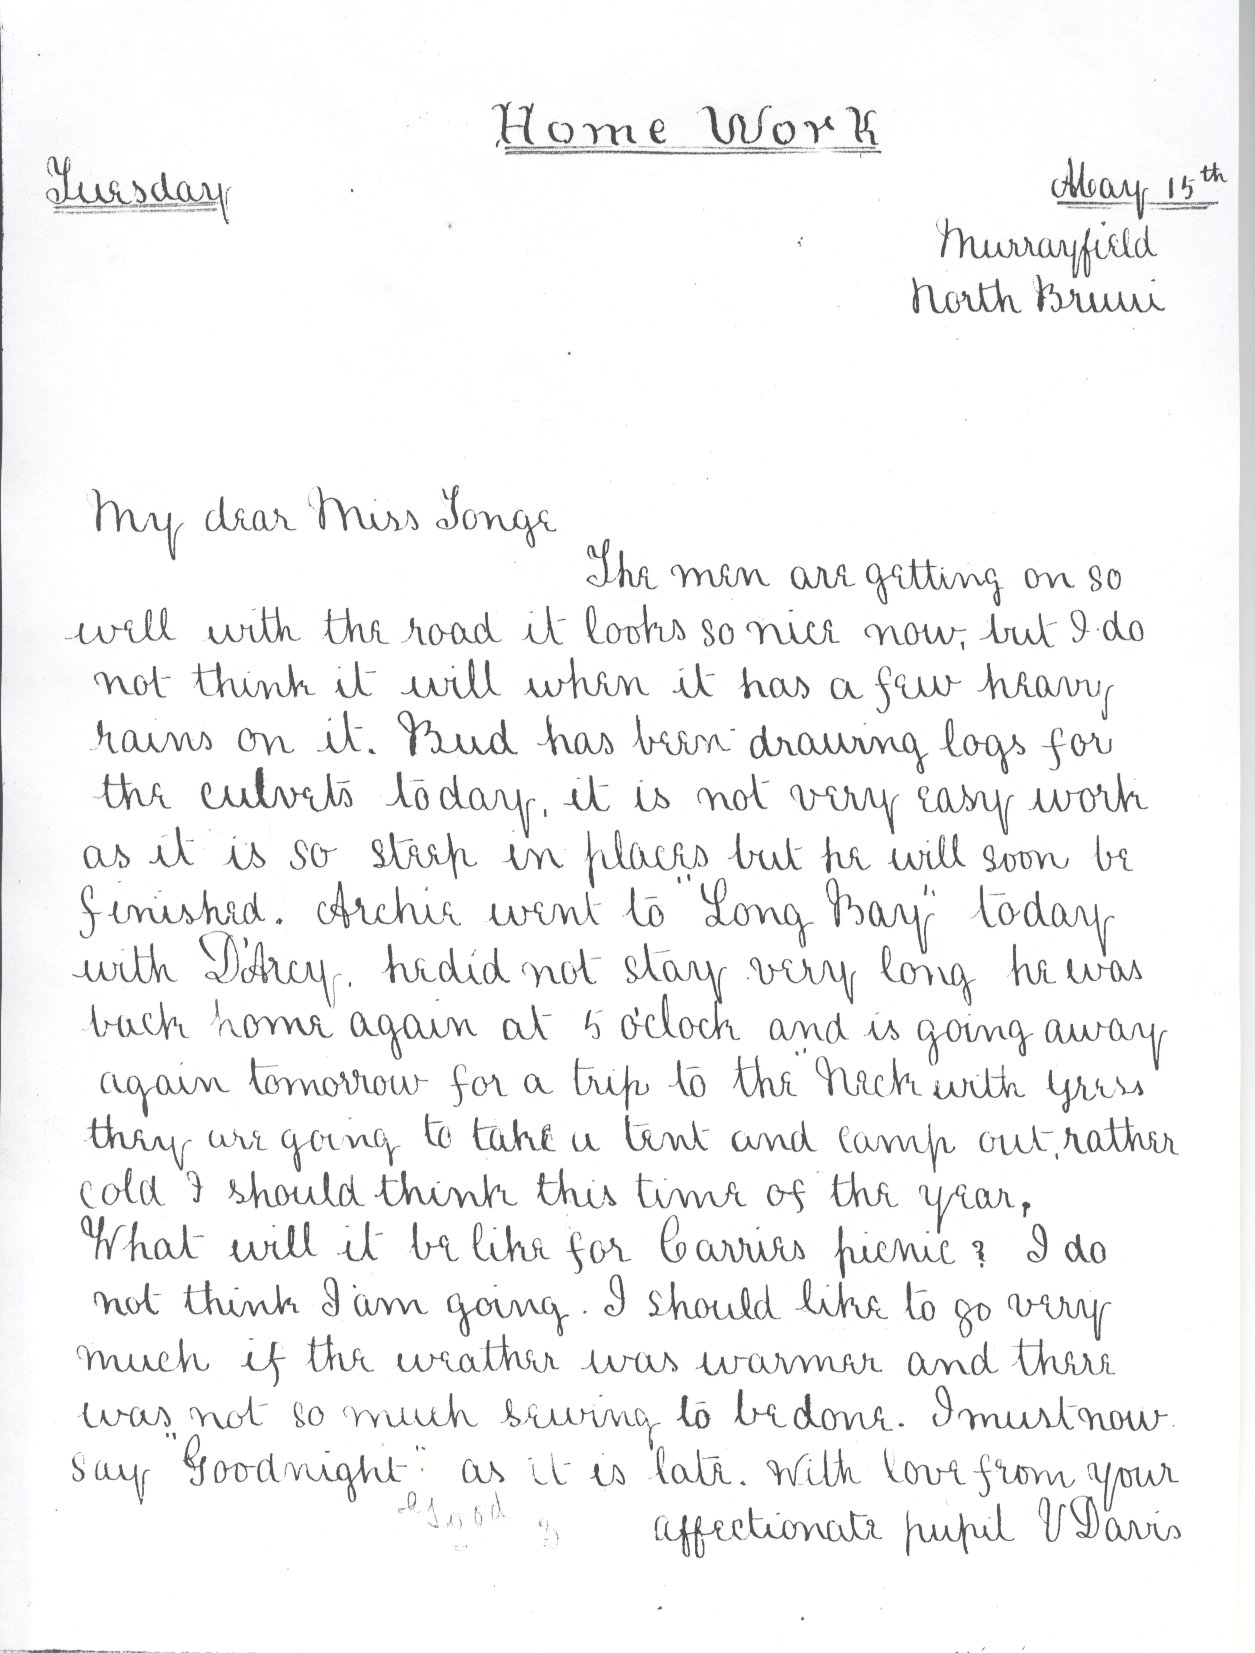 Home Work
Tuesday
May 15th
Murrayfield
North Bruni
My dear Miss Tonge
The men are getting on so
well with the road it looks so nice now, but I do
not think it will when it has a few heavy
rains on it. Bud has been drawing logs for
the culvets today, it is not very easy work
as it is so steep in places but he will soon be
finished. Archie went to "Long Bay" today
with D'Arcy. he did not stay very long he was
back home again at 5 o'clock and is going away
again tomorrow for a trip to the "Neck with
they are going to take a tent and camp out, rather
cold I should think this time of the year,
What will it be like for Carries picnic? I do
not think I am going. I should like to go very
much if the weather was warmer and there
was not so much sewing to be done. I must now
say "Goodnight" as it is late. With love from your
Good
affectionate pupil V Davis